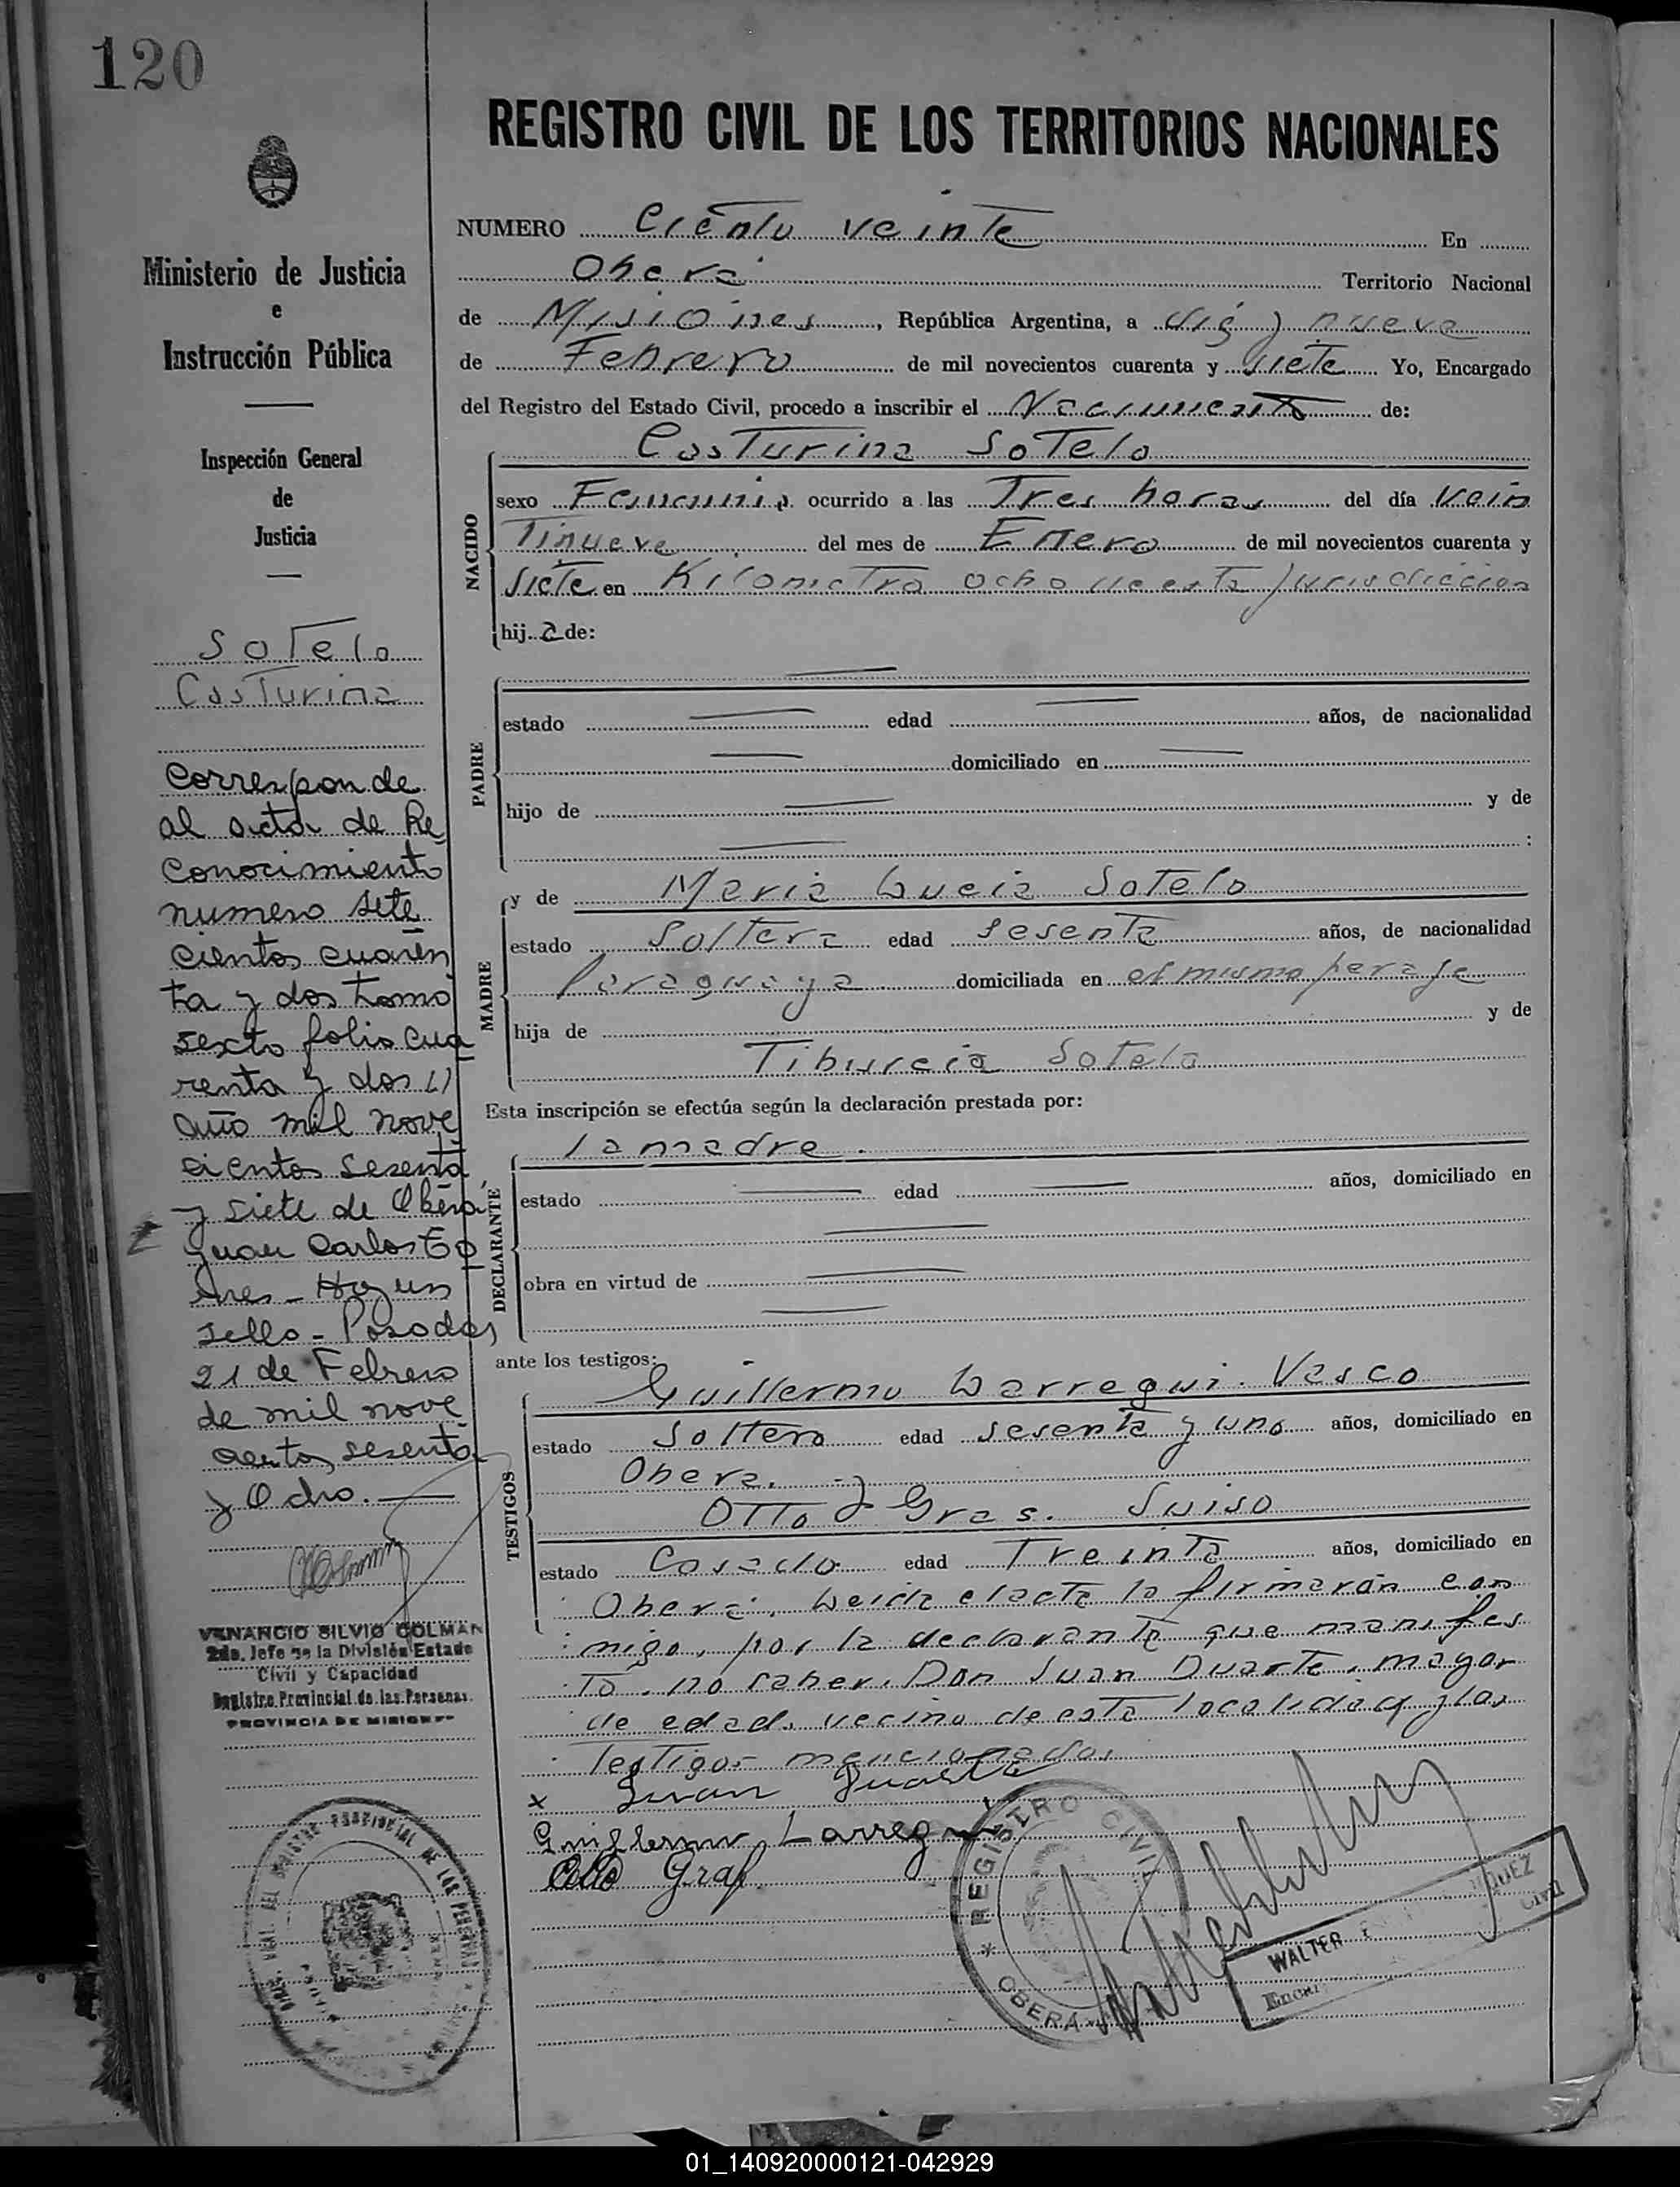 120
REGISTRO CIVIL DE LOS TERRITORIOS NACIONALES
NUMERO Ciento veinte En
Oberá Territorio Nacional
de Misiones, República Argentina, a diez y nueve
de Febrero de mil novecientos cuarenta y siete Yo, Encargado
del Registro del Estado Civil, procedo a inscribir el Nacimiento de:
Casturina Sotelo
NACIDO
sexo Femenino ocurrido a las Tres horas del día vein
Tinueve del mes de Enero de mil novecientos cuarenta y
siete en Kilometro ocho de esta jurisdiccion
hij a de:
PADRE
estado edad años, de nacionalidad
domiciliado en
hijo de y de
:
MADRE
y de Maria Lucia Sotelo
estado Soltera edad sesenta años, de nacionalidad
Paraguaya domiciliada en el mismo paraje
hija de y de
Tiburcia Sotelo
Esta inscripción se efectúa según la declaración prestada por:
la madre.
DECLARANTE
estado edad años, domiciliado en
obra en virtud de
ante los testigos:
Guillermo Larregui. Vasco
TESTIGOS
estado Soltero edad sesenta y uno años, domiciliado en
Obera.
Otto Gras. Suiso
estado Casado edad Treinta años, domiciliado en
Oberá. Leida el acta la firmarán con
migo, por la declarante que manifes
tó no saber, Don Juan Duarte, mayor
de edad, vecino de esta localidad y los
Testigos mencionados
x Juan Duarte
Guillermo Larregui
Otto Graf
REGISTRO CIVIL
OBERA
WALTER
Ministerio de Justicia
e
Instrucción Pública
Inspección General
de
Justicia
Sotelo
Casturina
Corresponde
al acta de Re
conocimiento
numero sete
cientos cuaren
ta y dos tomo
sexto folio cua
renta y dos
año mil nove
cientos sesenta
y siete de Oberá
Juan Carlos
Hay un
sello - Posadas
21 de Febrero
de mil nove
cientos sesenta
y Ocho.
VENANCIO SILVIO COLMAN
2do. Jefe de la División Estado
Civil y Capacidad
Registro Provincial de las Personas
PROVINCIA DE MISIONES
01_140920000121-042929